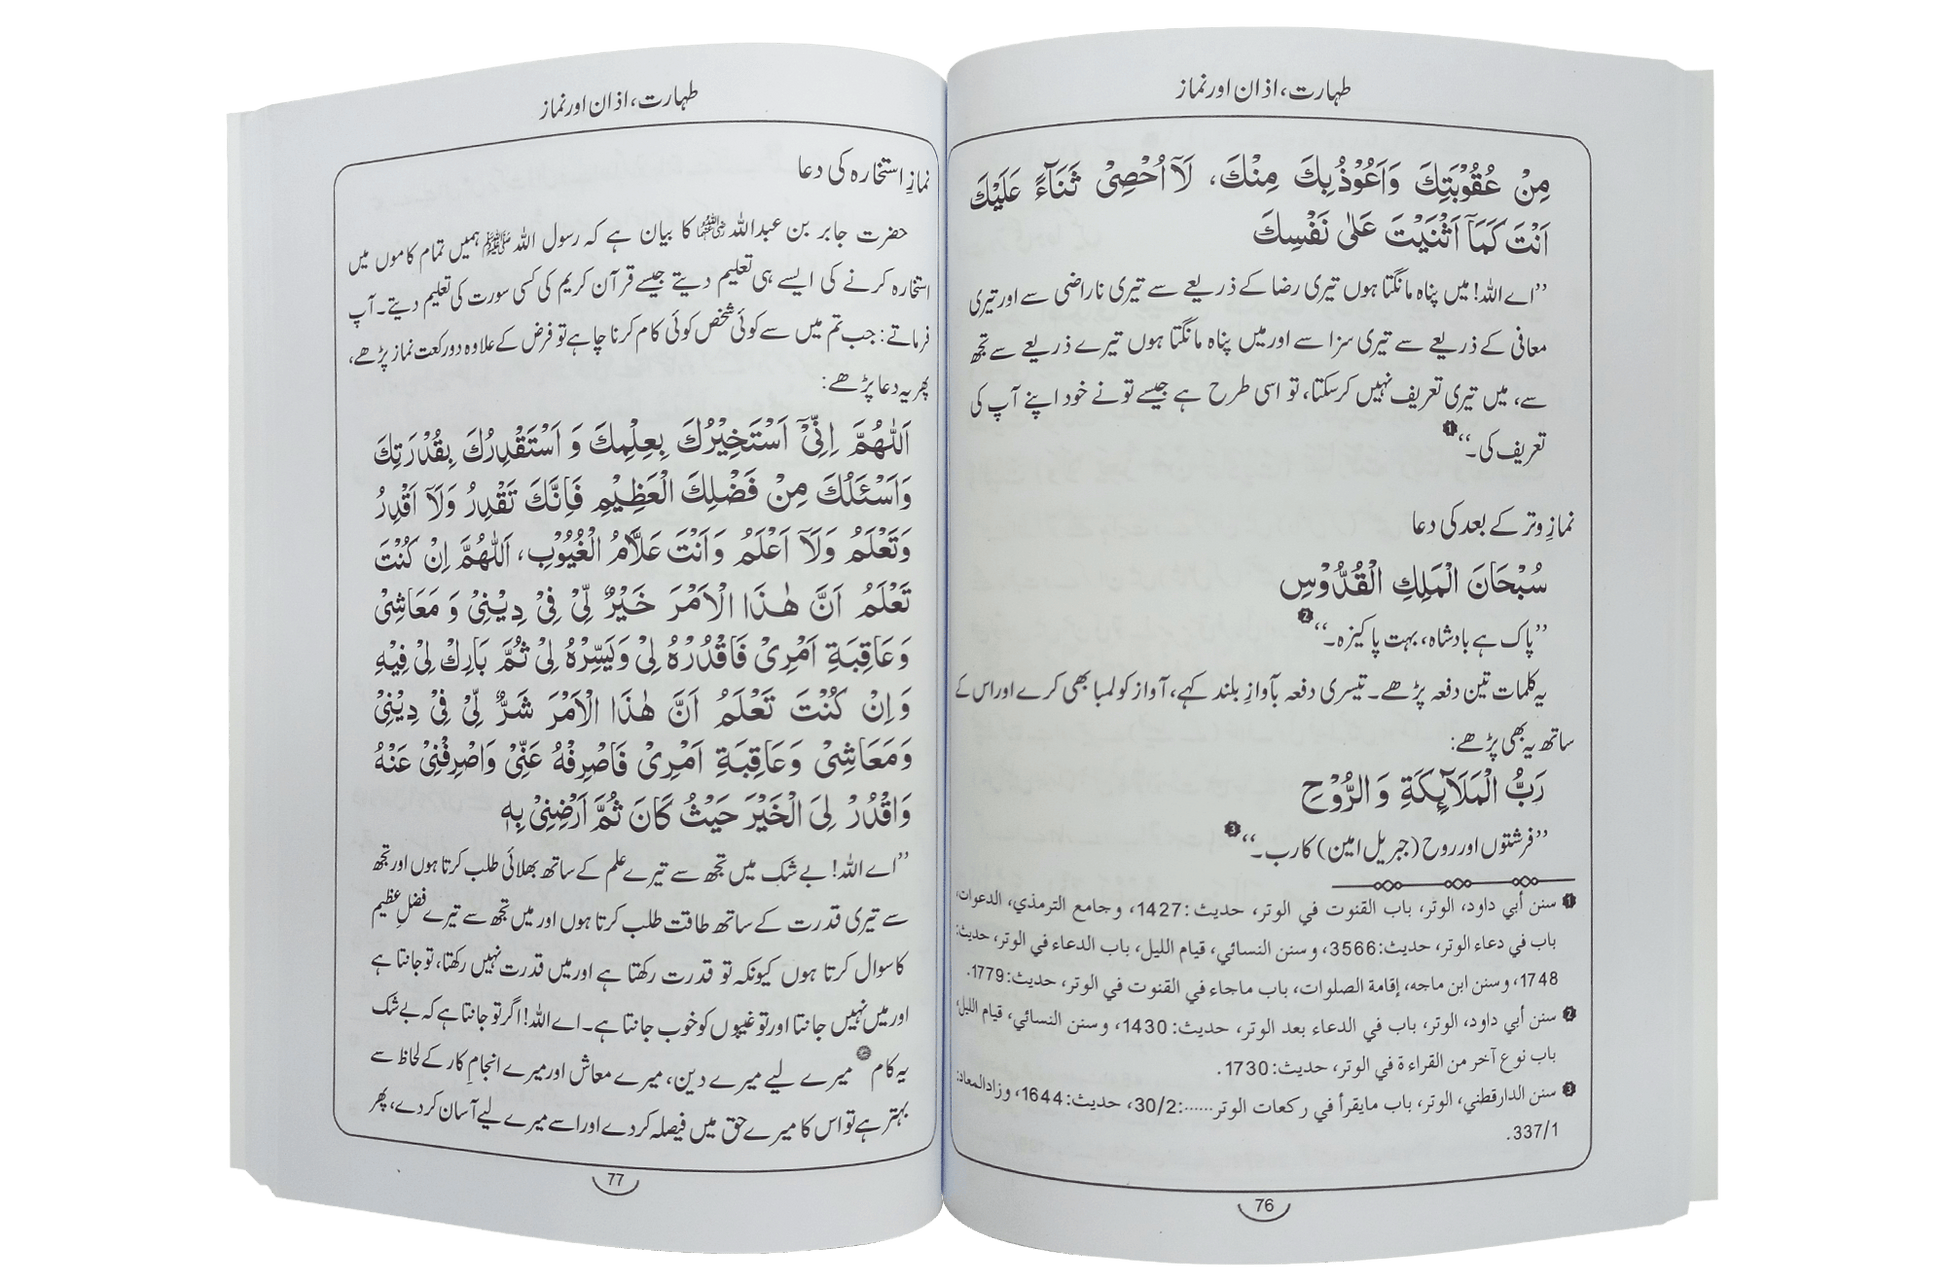 طہارت، اذان اور نماز
مِنْ عُقُوْبَتِكَ وَاَعُوْذُ بِكَ مِنْكَ، لَآ اُحْصِیْ ثَنَآءً عَلَيْكَ
اَنْتَ كَمَآ اَثْنَيْتَ عَلٰی نَفْسِكَ
’’اے اللہ! میں پناہ مانگتا ہوں تیری رضا کے ذریعے سے تیری ناراضی سے اور تیری
معافی کے ذریعے سے تیری سزا سے اور میں پناہ مانگتا ہوں تیرے ذریعے سے تجھ
سے، میں تیری تعریف نہیں کر سکتا، تو اسی طرح ہے جیسے تو نے خود اپنے آپ کی
تعریف کی۔‘‘ ❶
نمازِ وتر کے بعد کی دعا
سُبْحَانَ الْمَلِكِ الْقُدُّوْسِ
’’پاک ہے بادشاہ، بہت پاکیزہ۔‘‘ ❷
یہ کلمات تین دفعہ پڑھے۔ تیسری دفعہ بآوازِ بلند کہے، آواز کو لمبا بھی کرے اور اس کے
ساتھ یہ بھی پڑھے:
رَبُّ الْمَلَآئِكَةِ وَ الرُّوْحِ
’’فرشتوں اور روح (جبریل امین) کا رب۔‘‘ ❸
❶ سنن أبي داود، الوتر، باب القنوت في الوتر، حديث: 1427، وجامع الترمذي، الدعوات،
باب في دعاء الوتر، حديث: 3566، وسنن النسائي، قيام الليل، باب الدعاء في الوتر، حديث:
1748، وسنن ابن ماجه، إقامة الصلوات، باب ماجاء في القنوت في الوتر، حديث: 1779.
❷ سنن أبي داود، الوتر، باب في الدعاء بعد الوتر، حديث: 1430، وسنن النسائي، قيام الليل،
باب نوع آخر من القراءة في الوتر، حديث: 1730.
❸ سنن الدارقطني، الوتر، باب مايقرأ في ركعات الوتر......: 30/2، حديث: 1644، وزادالمعاد:
337/1.
76
طہارت، اذان اور نماز
نمازِ استخارہ کی دعا
حضرت جابر بن عبداللہ رضی اللہ عنہما کا بیان ہے کہ رسول اللہ ﷺ ہمیں تمام کاموں میں
استخارہ کرنے کی ایسے ہی تعلیم دیتے جیسے قرآن کریم کی کسی سورت کی تعلیم دیتے۔ آپ
فرماتے: جب تم میں سے کوئی شخص کوئی کام کرنا چاہے تو فرض کے علاوہ دو رکعت نماز پڑھے،
پھر یہ دعا پڑھے:
اَللّٰهُمَّ اِنِّیْٓ اَسْتَخِيْرُكَ بِعِلْمِكَ وَ اَسْتَقْدِرُكَ بِقُدْرَتِكَ
وَاَسْئَلُكَ مِنْ فَضْلِكَ الْعَظِيْمِ فَاِنَّكَ تَقْدِرُ وَلَآ اَقْدِرُ
وَتَعْلَمُ وَلَآ اَعْلَمُ وَاَنْتَ عَلَّامُ الْغُيُوْبِ، اَللّٰهُمَّ اِنْ كُنْتَ
تَعْلَمُ اَنَّ هٰذَا الْاَمْرَ خَيْرٌ لِّیْ فِیْ دِيْنِیْ وَ مَعَاشِیْ
وَعَاقِبَةِ اَمْرِیْ فَاقْدُرْهُ لِیْ وَيَسِّرْهُ لِیْ ثُمَّ بَارِكْ لِیْ فِيْهِ
وَاِنْ كُنْتَ تَعْلَمُ اَنَّ هٰذَا الْاَمْرَ شَرٌّ لِّیْ فِیْ دِيْنِیْ
وَمَعَاشِیْ وَعَاقِبَةِ اَمْرِیْ فَاصْرِفْهُ عَنِّیْ وَاصْرِفْنِیْ عَنْهُ
وَاقْدُرْ لِیَ الْخَيْرَ حَيْثُ كَانَ ثُمَّ اَرْضِنِیْ بِهٖ
’’اے اللہ! بے شک میں تجھ سے تیرے علم کے ساتھ بھلائی طلب کرتا ہوں اور تجھ
سے تیری قدرت کے ساتھ طاقت طلب کرتا ہوں اور میں تجھ سے تیرے فضلِ عظیم
کا سوال کرتا ہوں کیونکہ تو قدرت رکھتا ہے اور میں قدرت نہیں رکھتا، تو جانتا ہے
اور میں نہیں جانتا اور تو غیبوں کو خوب جانتا ہے۔ اے اللہ! اگر تو جانتا ہے کہ بے شک
یہ کام میرے لیے میرے دین، میرے معاش اور میرے انجامِ کار کے لحاظ سے
بہتر ہے تو اس کا میرے حق میں فیصلہ کر دے اور اسے میرے لیے آسان کر دے، پھر
77